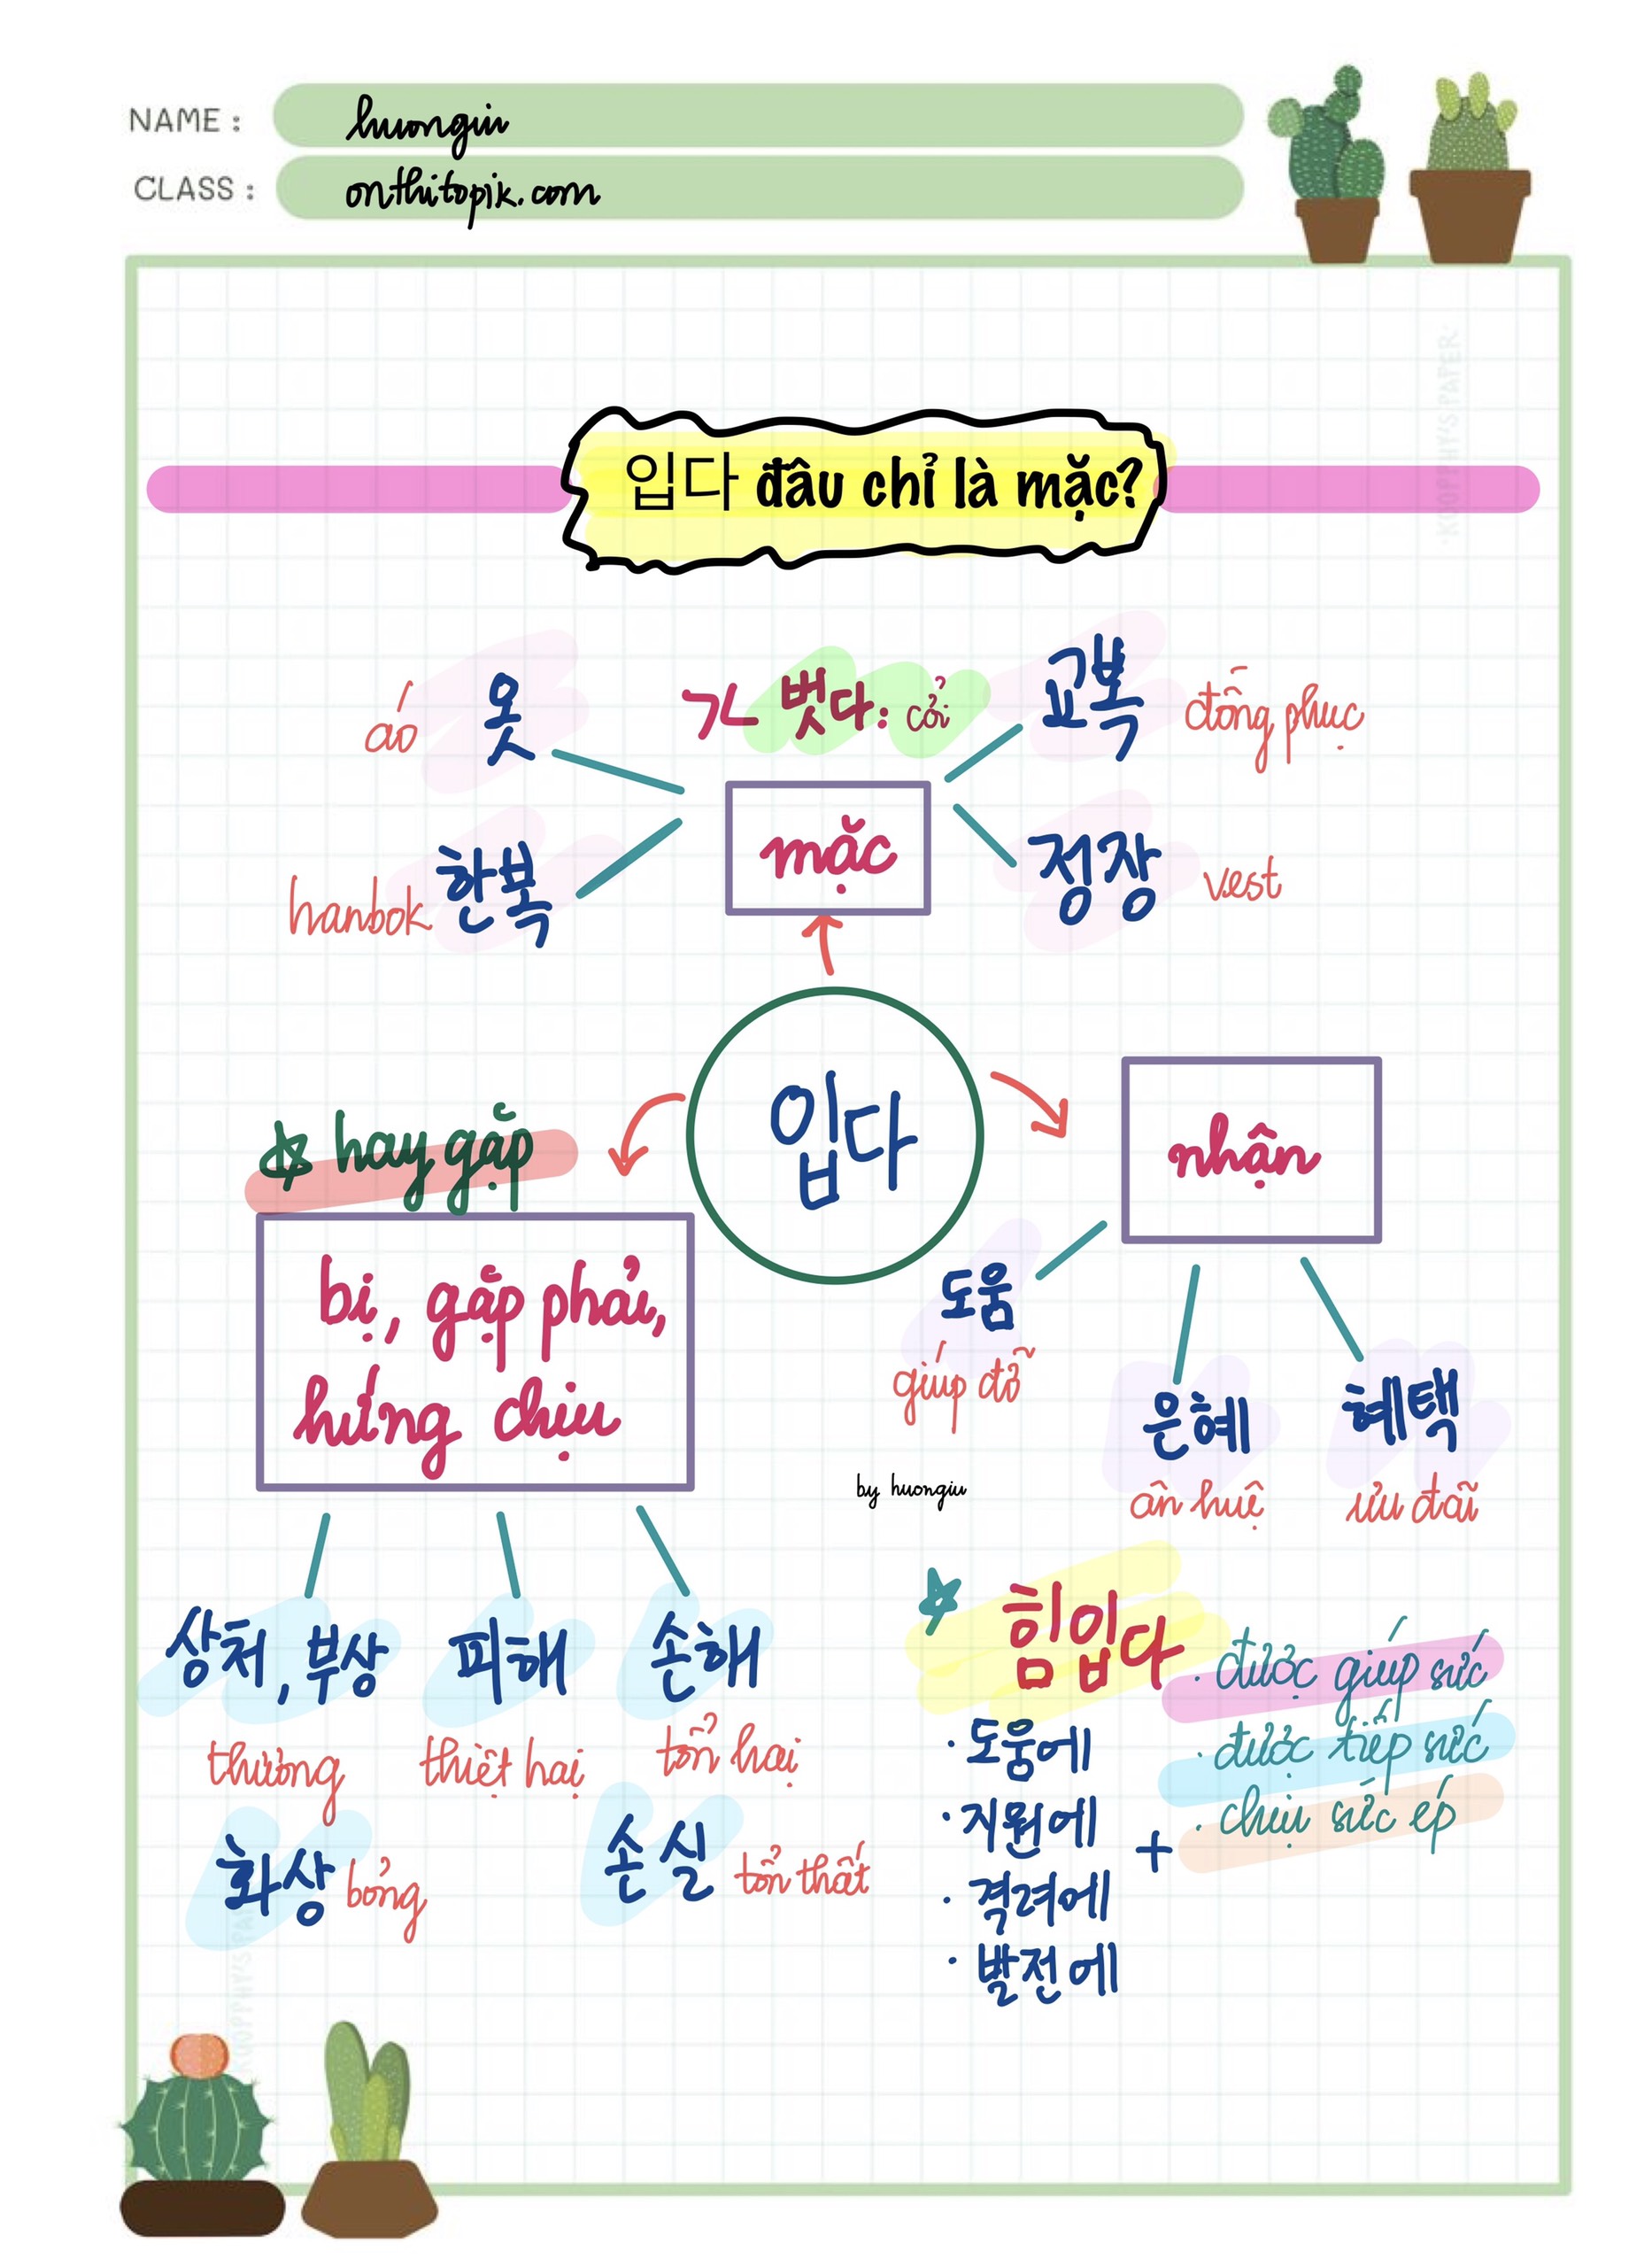 NAME : huongiu
CLASS : onthitopik.com
KOOPPHY'S PAPER
입다 đâu chỉ là mặc?
áo 옷
>< 벗다: cởi
교복 đồng phục
hanbok 한복
mặc
정장 vest
입다
☆ hay gặp
bị, gặp phải,
hứng chịu
nhận
도움
giúp đỡ
은혜
ân huệ
혜택
ưu đãi
by huongiu
상처, 부상
thương
피해
thiệt hại
손해
tổn hại
화상 bỏng
손실 tổn thất
☆ 힘입다
· 도움에
· 지원에
· 격려에
· 발전에
+
· được giúp sức
· được tiếp sức
· chịu sức ép
KOOPPHY'S PAPER